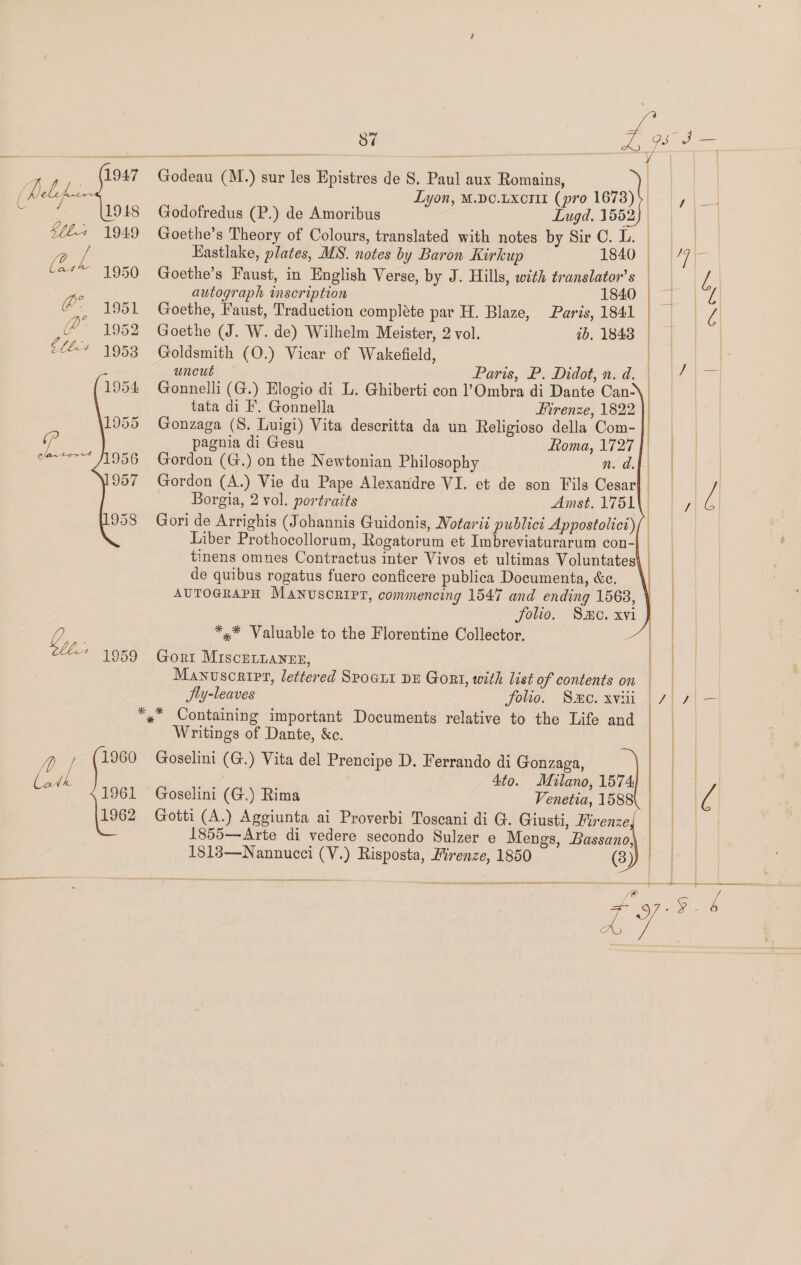 87 £ 95 3 —
1947 Godeau (M.) sur les Epistres de S. Paul aux Romains,
Lyon, M.DC.LXCIII (pro 1673)
1948 Godofredus (P.) de Amoribus Lugd. 1552
Ellis 1949 Goethe's Theory of Colours, translated with notes by Sir C. L.
Eastlake, plates, MS. notes by Baron Kirkup 1840 19 —
Cash 1950 Goethe's Faust, in English Verse, by J. Hills, with translator's
autograph inscription 1840
Do 1951 Goethe, Faust, Traduction complète par H. Blaze, Paris, 1841
Do 1952 Goethe (J. W. de) Wilhelm Meister, 2 vol. ib. 1843
Ellis 1953 Goldsmith (O.) Vicar of Wakefield,
uncut Paris, P. Didot, n. d. 1 —
1954 Gonnelli (G.) Elogio di L. Ghiberti con l'Ombra di Dante Can-
tata di F. Gonnella Firenze, 1822
1955 Gonzaga (S. Luigi) Vita descritta da un Religioso della Com-
pagnia di Gesu Roma, 1727
1956 Gordon (G.) on the Newtonian Philosophy n. d.
1957 Gordon (A.) Vie du Pape Alexandre VI. et de son Fils Cesar
Borgia, 2 vol. portraits Amst. 1751 1 6
1958 Gori de Arrighis (Johannis Guidonis, Notarii publici Appostolici)
Liber Prothocollorum, Rogatorum et Imbreviaturarum con-
tinens omnes Contractus inter Vivos et ultimas Voluntates
de quibus rogatus fuero conficere publica Documenta, &c.
AUTOGRAPH MANUSCRIPT, commencing 1547 and ending 1563,
folio. SÆC. XVI
*** Valuable to the Florentine Collector.
Ellis 1959 GORI MISCELLANEE,
MANUSCRIPT, lettered SPOGLI DE GORI, with list of contents on
fly-leaves folio. SÆC. XVIII 1 1 —
*** Containing important Documents relative to the Life and
Writings of Dante, &c.
1960 Goselini (G.) Vita del Prencipe D. Ferrando di Gonzaga,
Cash 4to. Milano, 1574
1961 Goselini (G.) Rima Venetia, 1588 6
1962 Gotti (A.) Aggiunta ai Proverbi Toscani di G. Giusti, Firenze,
1855—Arte di vedere secondo Sulzer e Mengs, Bassano,
1813—Nannucci (V.) Risposta, Firenze, 1850 (3)
£ 97 . 8 . 6